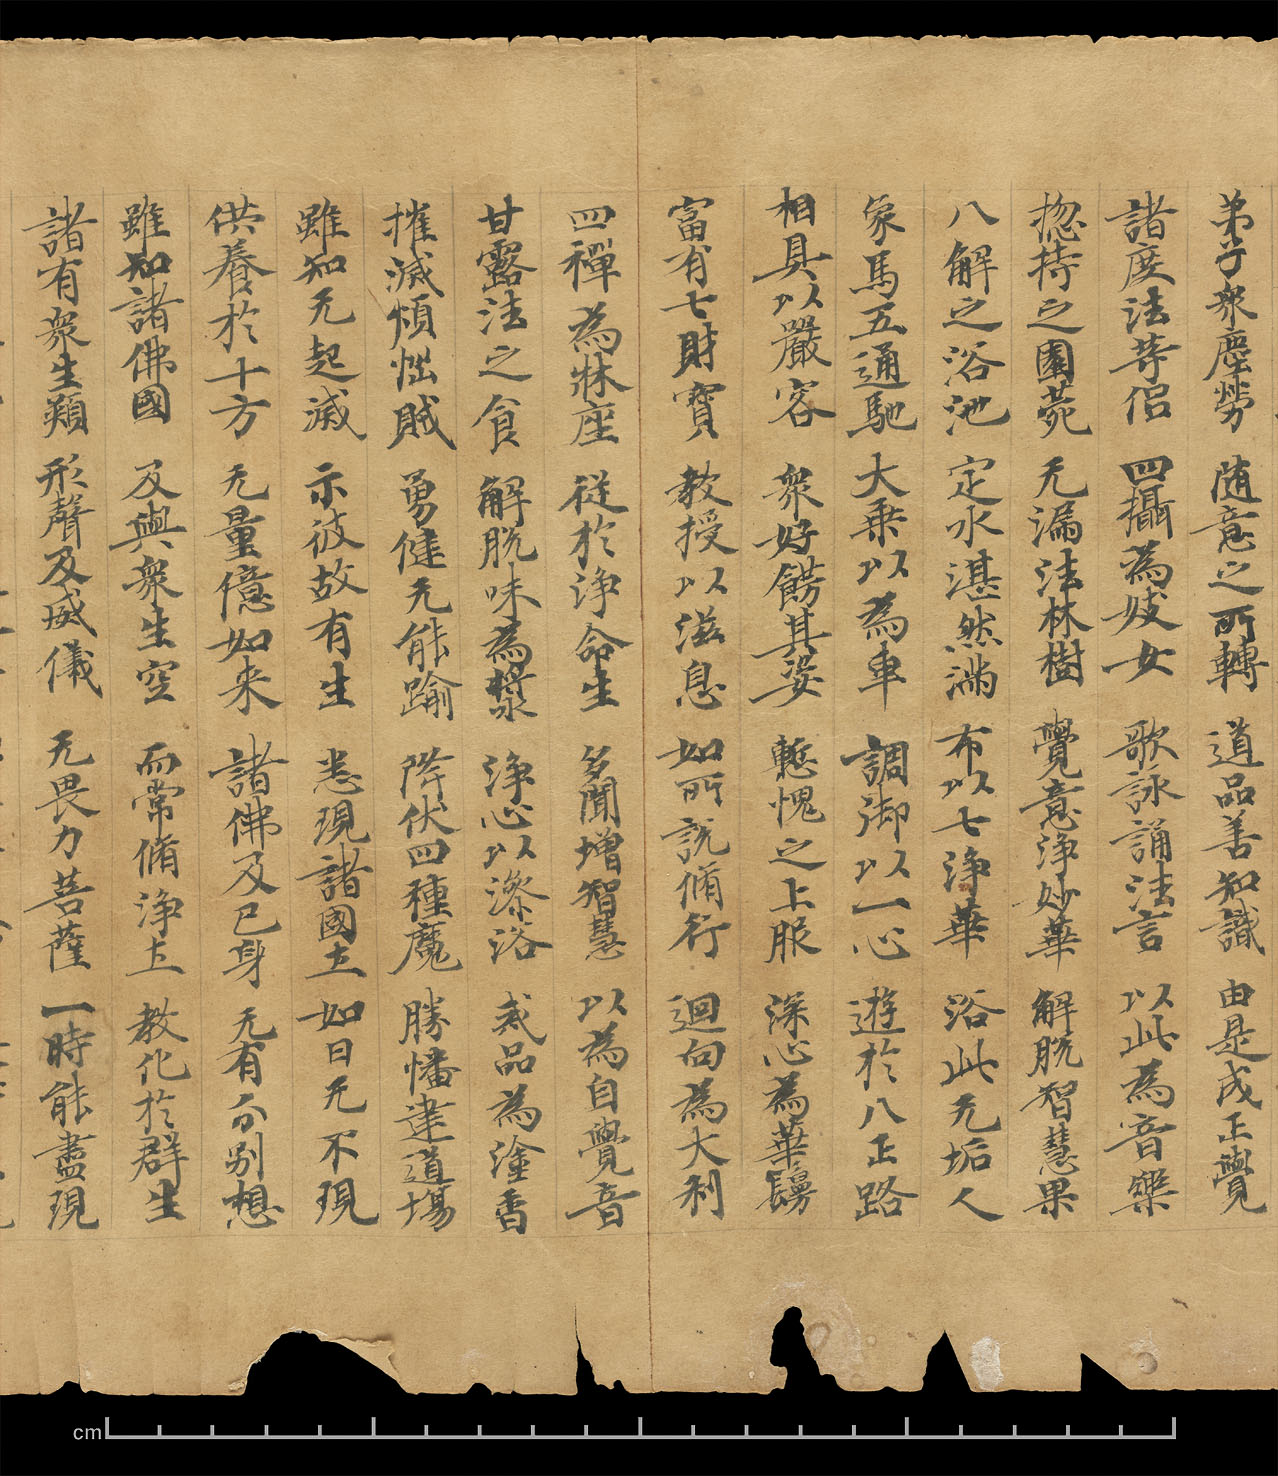 弟子衆塵勞 随意之所轉 道品善知識 由是成正覺
諸度法等侶 四攝為妓女 歌詠誦法言 以此為音樂
惣持之園菀 无漏法林樹 覺意浄妙華 解脱智慧果
八解之浴池 定水湛然滿 布以七浄華 浴此无垢人
象馬五通馳 大乗以為車 調御以一心 遊於八正路
相具以嚴容 衆好餝其姿 慙愧之上服 深心為華鬘
富有七財寶 教授以滋息 如所說脩行 迴向為大利
四禪為牀座 從於浄命生 多聞增智慧 以為自覺音
甘露法之食 解脱味為漿 浄心以澡浴 戒品為塗香
摧滅煩惱賊 勇健无能踰 降伏四種魔 勝幡建道場
雖知无起滅 示彼故有生 悉現諸國土 如日无不現
供養於十方 无量億如来 諸佛及己身 无有分别想
雖知諸佛國 及與衆生空 而常脩浄土 教化於群生
諸有衆生類 形聲及威儀 无畏力菩薩 一時能盡現
cm